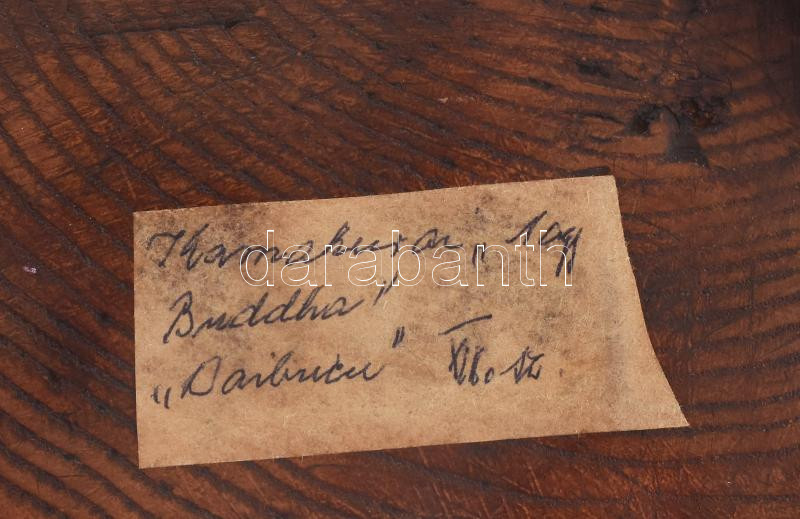 Kamakurai „ Nagy
Buddha"
„Daibucu" XII. sz.
darabanth